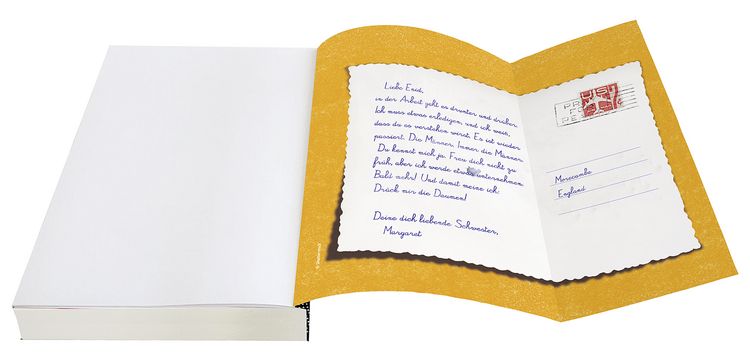 Liebe Enid,
in der Arbeit geht es drunter und drüber.
Ich muss etwas erledigen, und ich weiß,
dass du es verstehen wirst. Es ist wieder
passiert. Die Männer. Immer die Männer.
Du kennst mich ja. Freu dich nicht zu
früh, aber ich werde etwas unternehmen.
Bald mehr! Und damit meine ich:
Drück mir die Daumen!
Deine dich liebende Schwester,
Margaret
Morecambe
England